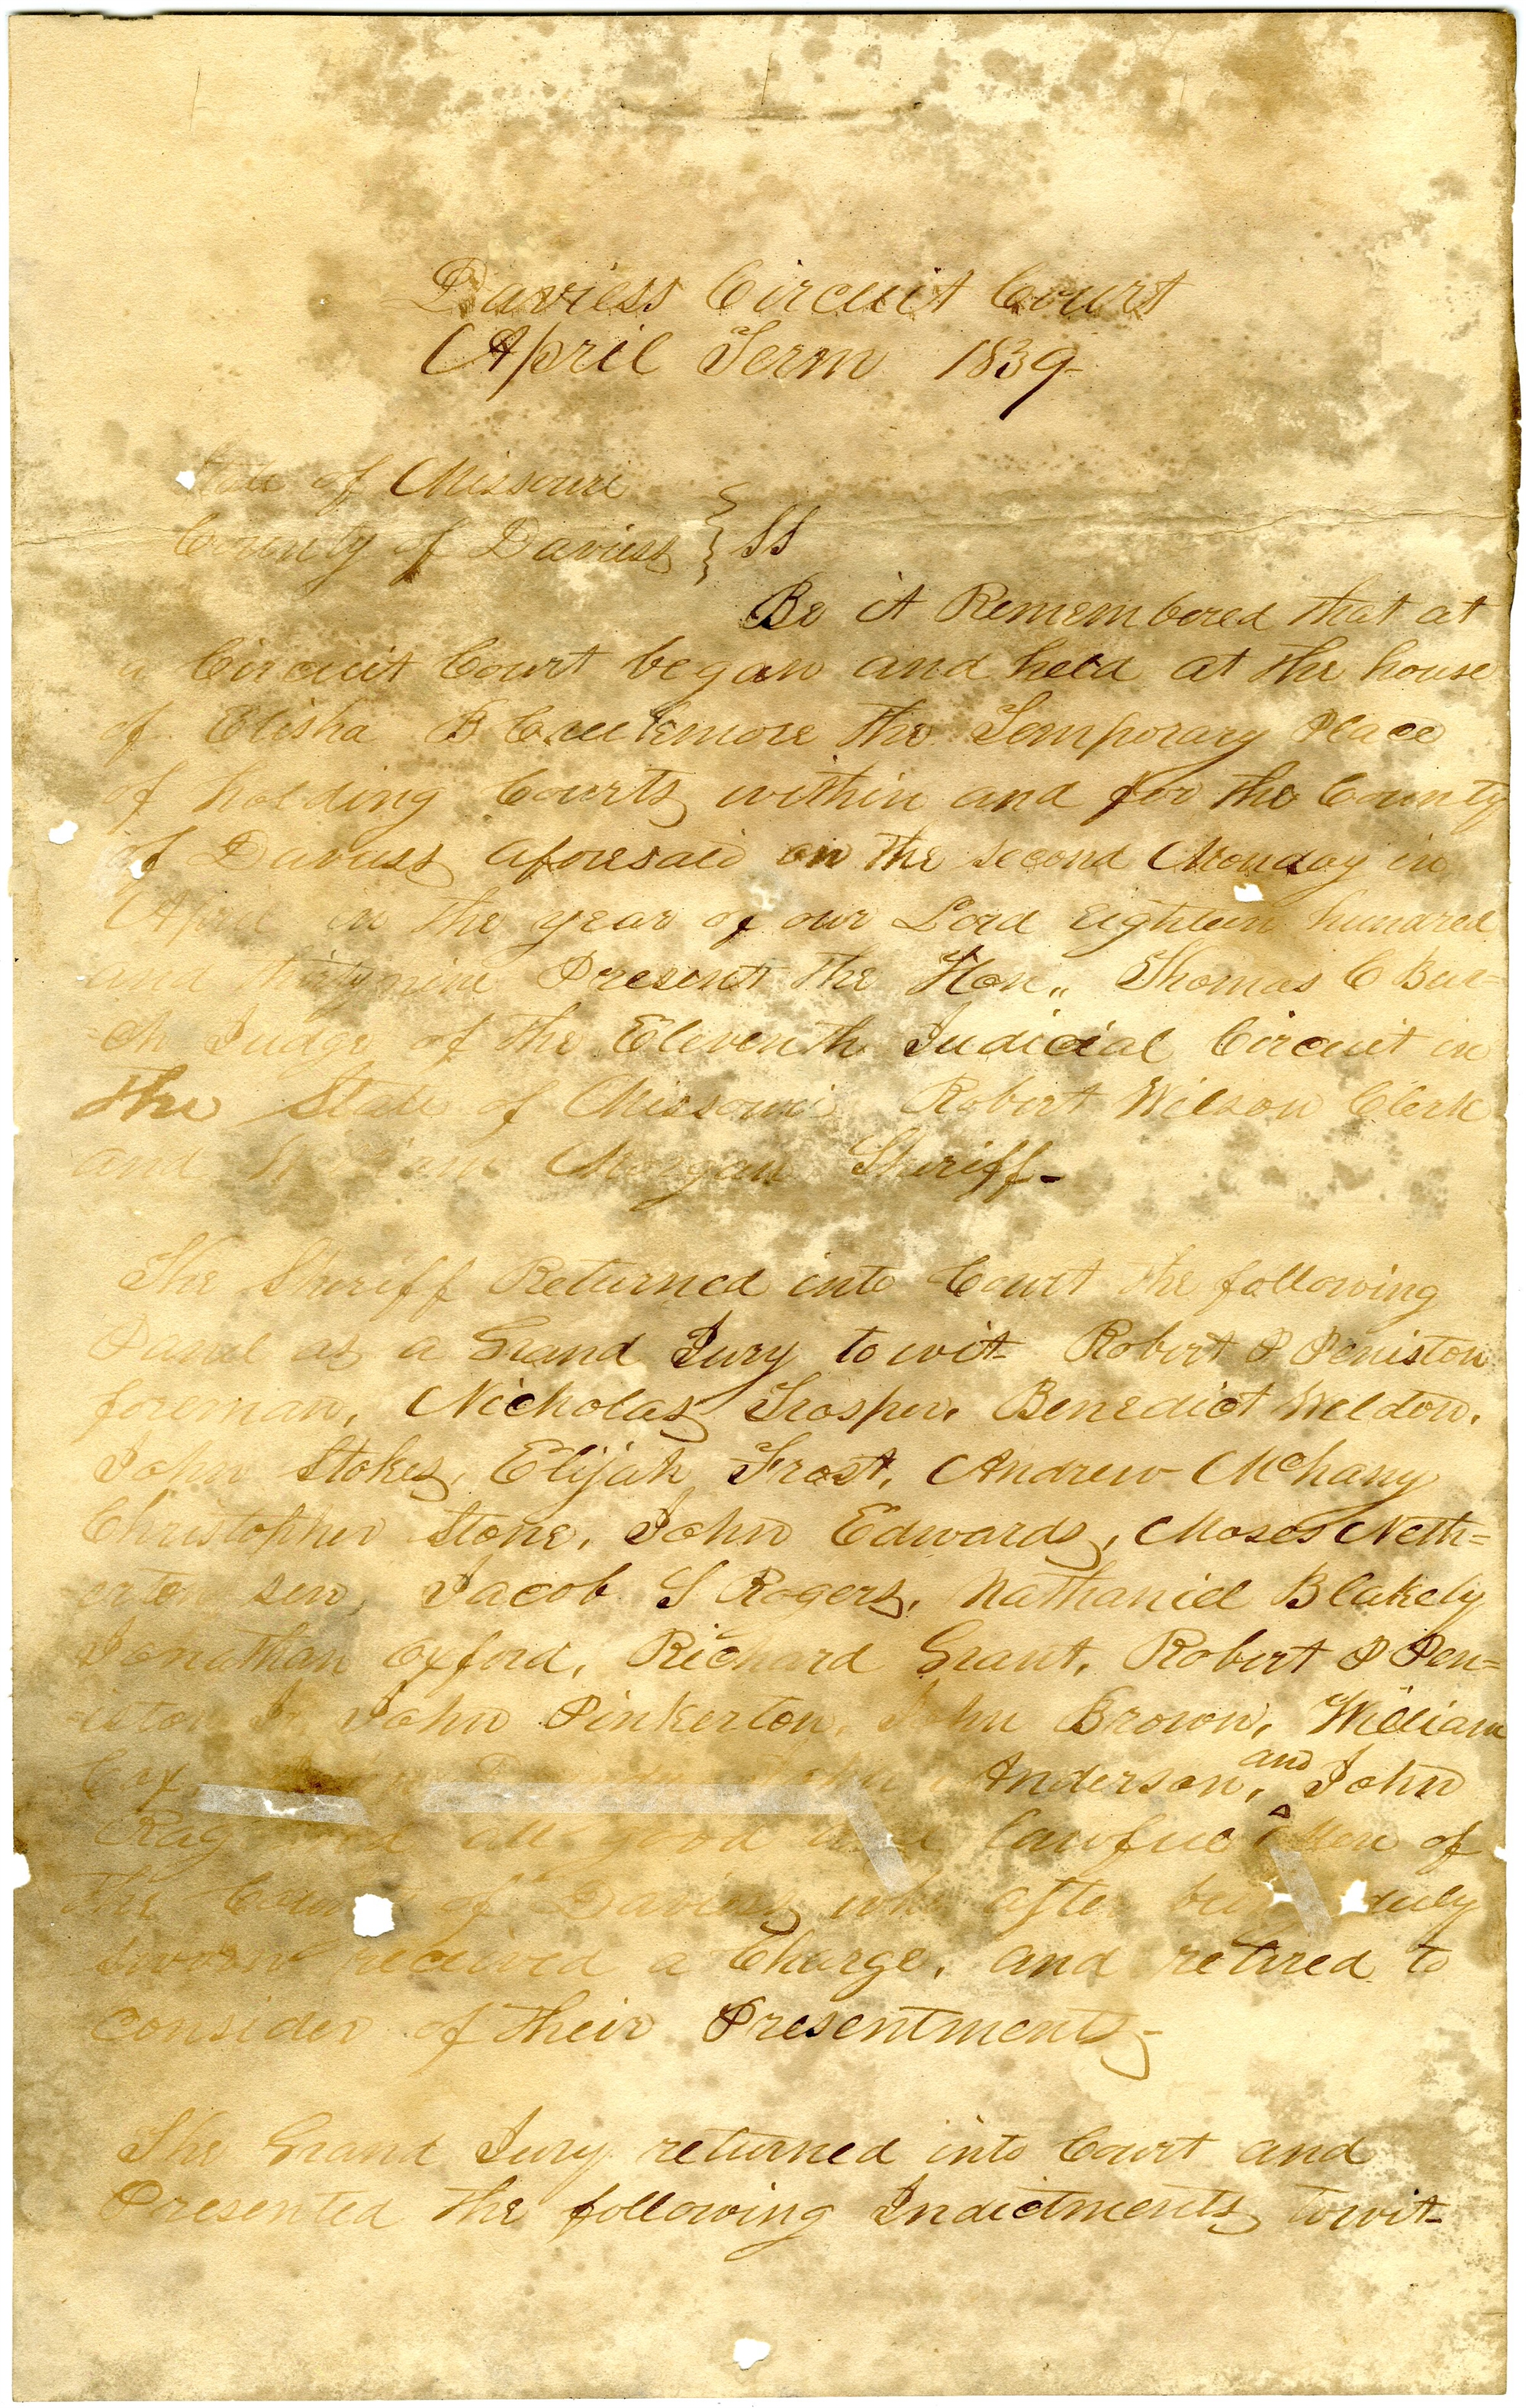 Daviess Circuit Court
April Term 1839-
State of Missouri
County of Daviess } SS
Be it Remembered that at
a Circuit Court began and held at the house
of Elisha B Creekmore the Temporary Place
of holding Courts within and for the County
of Daviess aforesaid on the second Monday in
April in the year of our Lord Eighteen hundred
and thirtynine Present the Hon,, Thomas C Bur=
=ch Judge of the Eleventh Judicial Circuit in
the State of Missouri Robert Wilson Clerk
and William Morgan Sheriff-
The Sheriff Returned into Court the following
Panel as a Grand Jury to wit- Robert P Peniston
foreman, Nicholas Trosper, Benedict Weldon,
John Stokes, Elijah Frost, Andrew McHany
Christopher Stone, John Edwards, Moses Neth=
erton sen, Jacob S Rogers, Nathaniel Blakely
Jonathan Oxford, Richard Grant, Robert P Pen=
=iston Jr John Pinkerton, John Brown, William
Cox, John Anderson, and John
all good and lawful Men of
the County of Daviess who after being duly
sworn received a Charge, and retired to
consider of their Presentments-
The Grand Jury returned into Court and
Presented the following Indictments towit-